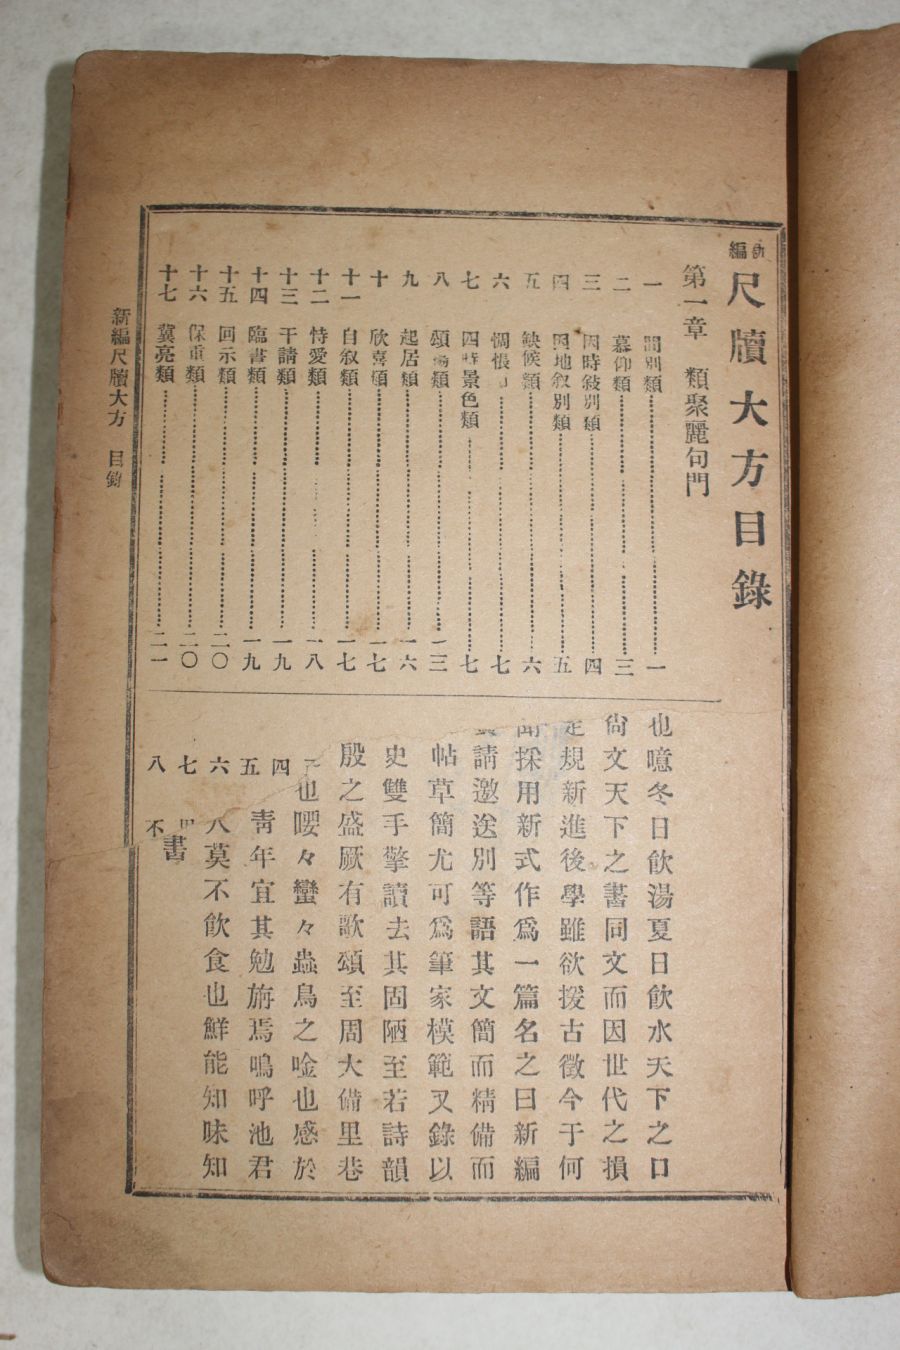 新編 尺牘大方目錄
第一章 類聚麗句門
一 間別類 一
二 慕仰類 三
三 因時敍別類 四
四 因地敍別類 五
五 缺候類 六
六 惆悵 七
七 四時景色類 七
八 頌揚類 一三
九 起居類 一六
十 欣喜類 一七
十一 自敍類 一七
十二 恃愛類 一八
十三 干請類 一九
十四 臨書類 一九
十五 回示類 二〇
十六 保重類 二〇
十七 冀亮類 二一
也噫冬日飮湯夏日飮水天下之口
尙文天下之書同文而因世代之損
定規新進後學雖欲援古徵今于何
聞採用新式作爲一篇名之曰新編
請邀送別等語其文簡而精備而
帖草簡尤可爲筆家模範又錄以
史雙手擎讀去其固陋至若詩韻
殷之盛厥有歌頌至周大備里巷
也嚶々蠻々蟲鳥之唫也感於
四
靑年宜其勉旃焉嗚呼池君
五
六
人莫不飮食也鮮能知味知
七
書
八
不
新編尺牘大方 目錄